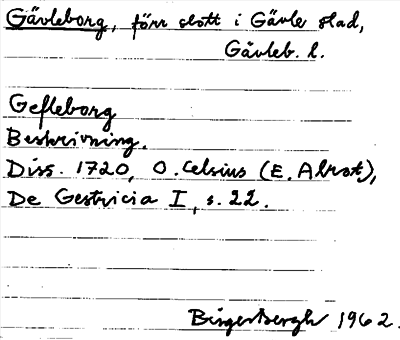 Gävleborg, förr slott i Gävle stad,
Gävleb. l.
Gefleborg
Beskrivning.
Diss. 1720, O. Celsius (E. Alrot),
De Gestricia I, s. 22.
Birger Bergh 1962.